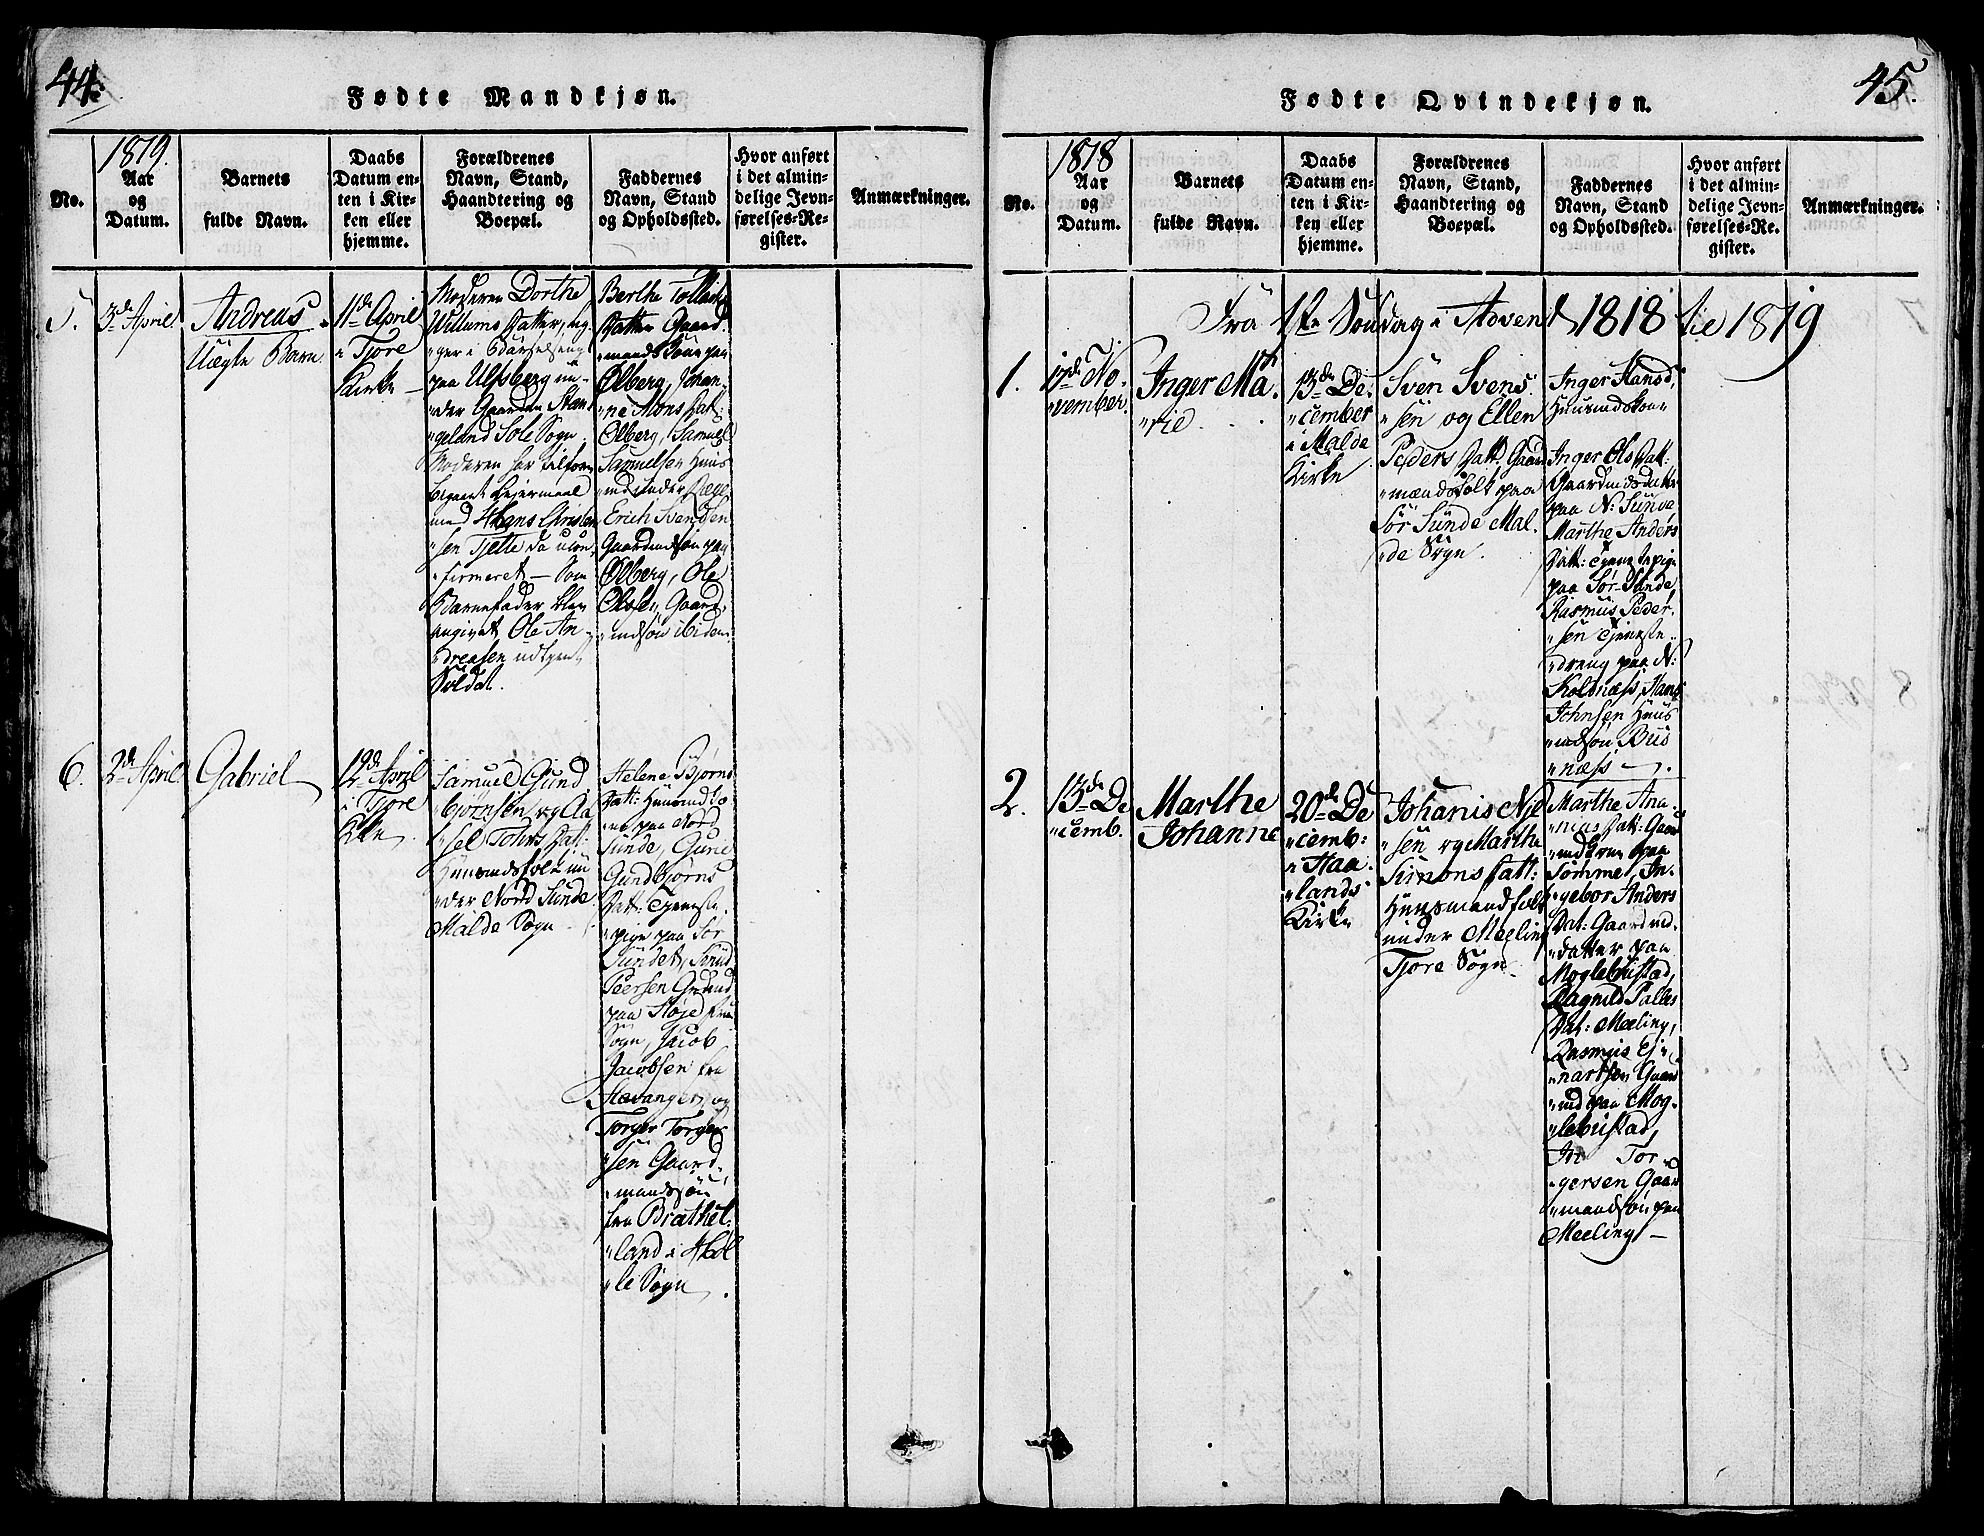 44.
Fødte Mandkjøn.
No.
1819.
Aar
og
Datum.
Barnets
fulde Navn.
Daabs
Datum en-
ten i Kir-
ken eller
hjemme.
Forældrenes
Navn, Stand,
Haandtering og
Boepæl.
Faddernes
Navn, Stand
og Opholdssted.
Hvor anført
i det almin-
delige Jevn-
førelses-Re-
gister.
Anmærkninger.
5.
3de April
Andreas
Uægte Barn
11de April
i Tjore
Kirke
Moderen Dorthe
Willums Datter,
ger i Barselseng
paa Ulsberg un-
der Gaarden Stan
geland Sole Sogn.
Moderen har tilforn
begaaet Leiermaal
med Hans Christen
sen Tjelte da ucon
firmeret – Som
Barnefader blev
angivet Ole An-
dreasen udtjent
Soldat.
Berthe
Datter Gaard
mands Kone paa
Ølberg, Johan-
ne Mons Dat:
Ølberg, Samuel
Samuelsen Huus
md under Ræge
Erich Svendsen
Gaardmdsøn paa
Ølberg, Ole
Olsen, Gaard
mdsøn ibidem
6.
2de April
Gabriel
12de April
i Tjore
Kirke
Samuel Gund
bjørnsen og Aa
sel Johns Dat:
Huusmdsfolk un
der Nord Sunde
Malde Sogn
Helene Bjørns
Datt: Huusmdko
ne paa Nord
Sunde, Gune
Gundbjørns
Dat: Tjeneste
pige paa Sør
Sundet, Knud
Peersen Grund
paa Høje fru
Sogn, Jacob
Jacobsen fra
Stavanger, og
Torger Torger
sen Gaard-
mandssøn
fra Bræthet
land i Høl
le Sogn.
45.
Fødte Qvindekjøn.
No.
1818
Aar
og
Datum.
Barnets
fulde Navn.
Daabs
Datum en-
ten i Kir-
ken eller
hjemme.
Forældrenes
Navn, Stand,
Haandtering og
Boepæl.
Faddernes
Navn, Stand
og Opholdssted.
Hvor anført
i det almin-
delige Jevn-
førelses-Re-
gister.
Anmærkninger.
Fra 1te Søndag i Advent 1818 til 1819
1.
17de No-
vember.
Inger Ma
rie
13de De-
cember
i Malde
Kirke
Sven Svens
sen og Ellen
Peders Datt. Gaard
mandsfolk paa
Sør Sunde Mal-
de Sogn.
Inger Hansd.
Huusmdskone
Inger Ols Datt:
Gaardmdsdatter
paa N: Sunde
Marthe Anders
Datt: Tjenestepige
paa Sør-Sunde
Rasmus Peder-
sen Tjeneste
dreng paa N:
Koldnæss, Hans
Johnsen Huus
mdsøn Bus
næss
2.
13de De
cemb.
Marthe
Johanne
20de De
cemb:
i Haa
lands
Kirke
Johanis Niel
sen og Marthe
Simons Datt:
Huusmandsfolk
under Meeling
Tjore Sogn
Marthe Ana-
nias Dat: Gaar
mdkone paa
Sømme, In-
gebor Anders
Dat: Gaardmd
datter paa
Moglebustad,
Ragnild Palles
Dat: Meeling,
Rasmus Ej
nartsen Gaar
md paa Mog-
lebustad,
Tor-
gersen Gaar
mandsøn paa
Meeling